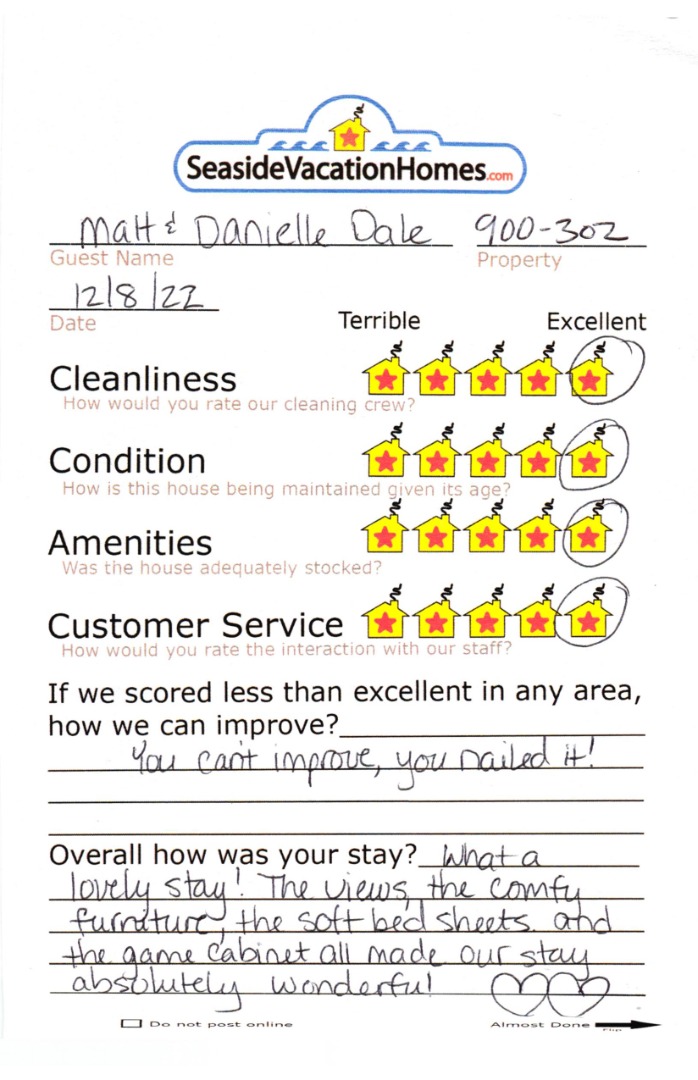 SeasideVacationHomes.com
Matt & Danielle Dale 900-302
Guest Name Property
12/8/22
Date
Terrible Excellent
Cleanliness
How would you rate our cleaning crew?
Condition
How is this house being maintained given its age?
Amenities
Was the house adequately stocked?
Customer Service
How would you rate the interaction with our staff?
If we scored less than excellent in any area,
how we can improve?
You can't improve, you nailed it!
Overall how was your stay? What a
lovely stay! The views, the comfy
furniture, the soft bed sheets and
the game cabinet all made our stay
absolutely wonderful
Do not post online Almost Done
Flip